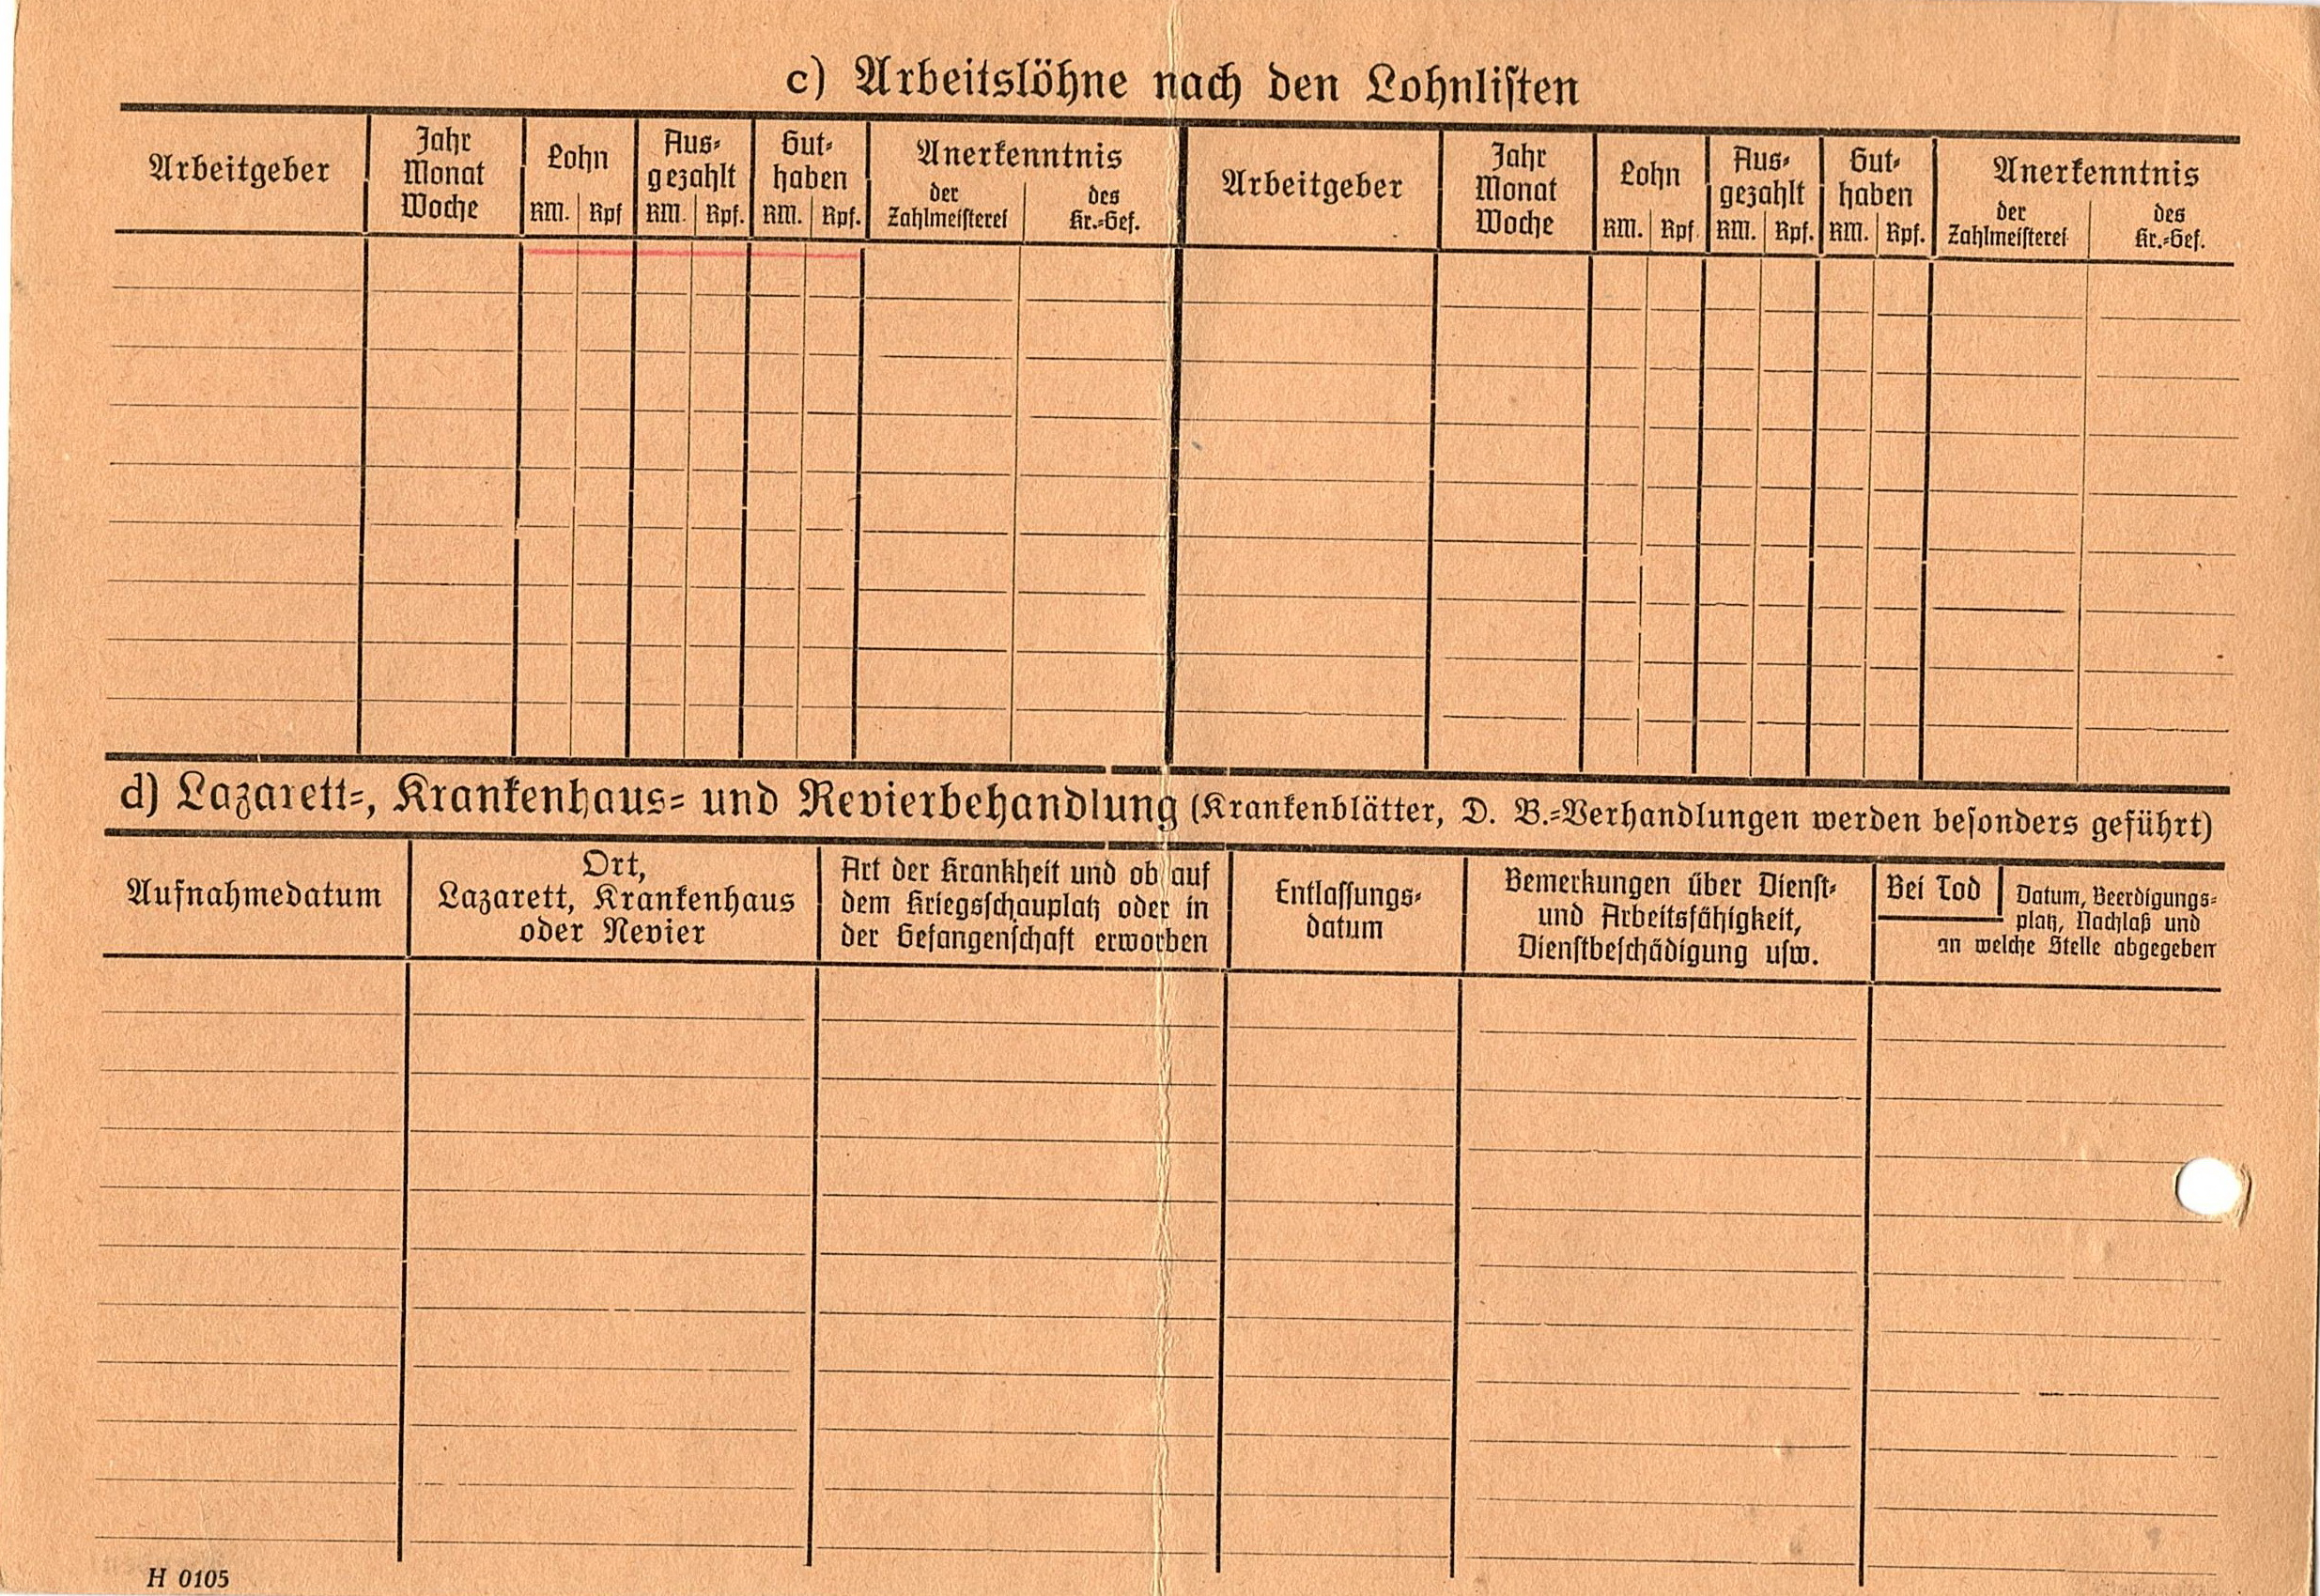 c) Arbeitslöhne nach den Lohnlisten
Arbeitgeber
Jahr
Monat
Woche
Lohn
RM. Rpf
Aus-
gezahlt
RM. Rpf.
Gut-
haben
RM. Rpf.
Anerkenntnis
der
Zahlmeisterei
des
Kr.-Gef.
Arbeitgeber
Jahr
Monat
Woche
Lohn
RM. Rpf
Aus-
gezahlt
RM. Rpf.
Gut-
haben
RM. Rpf.
Anerkenntnis
der
Zahlmeisterei
des
Kr.-Gef.
d) Lazarett-, Krankenhaus- und Revierbehandlung (Krankenblätter, D. B.-Verhandlungen werden besonders geführt)
Aufnahmedatum
Ort,
Lazarett, Krankenhaus
oder Revier
Art der Krankheit und ob auf
dem Kriegsschauplatz oder in
der Gefangenschaft erworben
Entlassungs-
datum
Bemerkungen über Dienst-
und Arbeitsfähigkeit,
Dienstbeschädigung usw.
Bei Tod
Datum, Beerdigungs-
platz, Nachlaß und
an welche Stelle abgegeben
H 0105